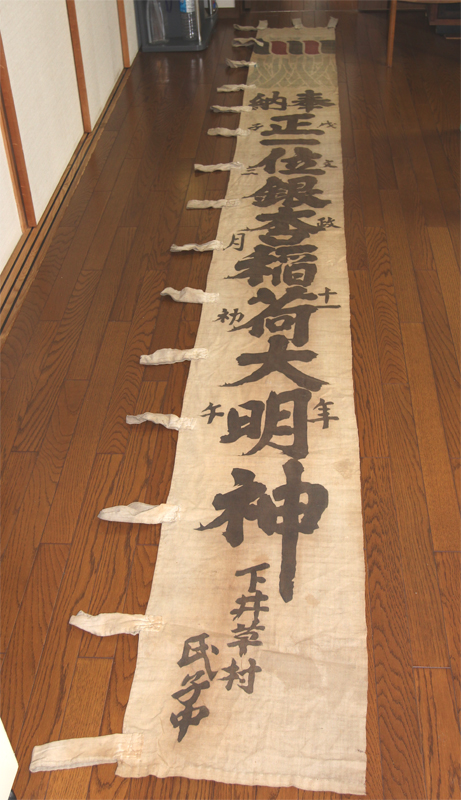 奉納
戊子
文政十一年
正一位銀杏稲荷大明神
三月初午
下井草村
氏子中